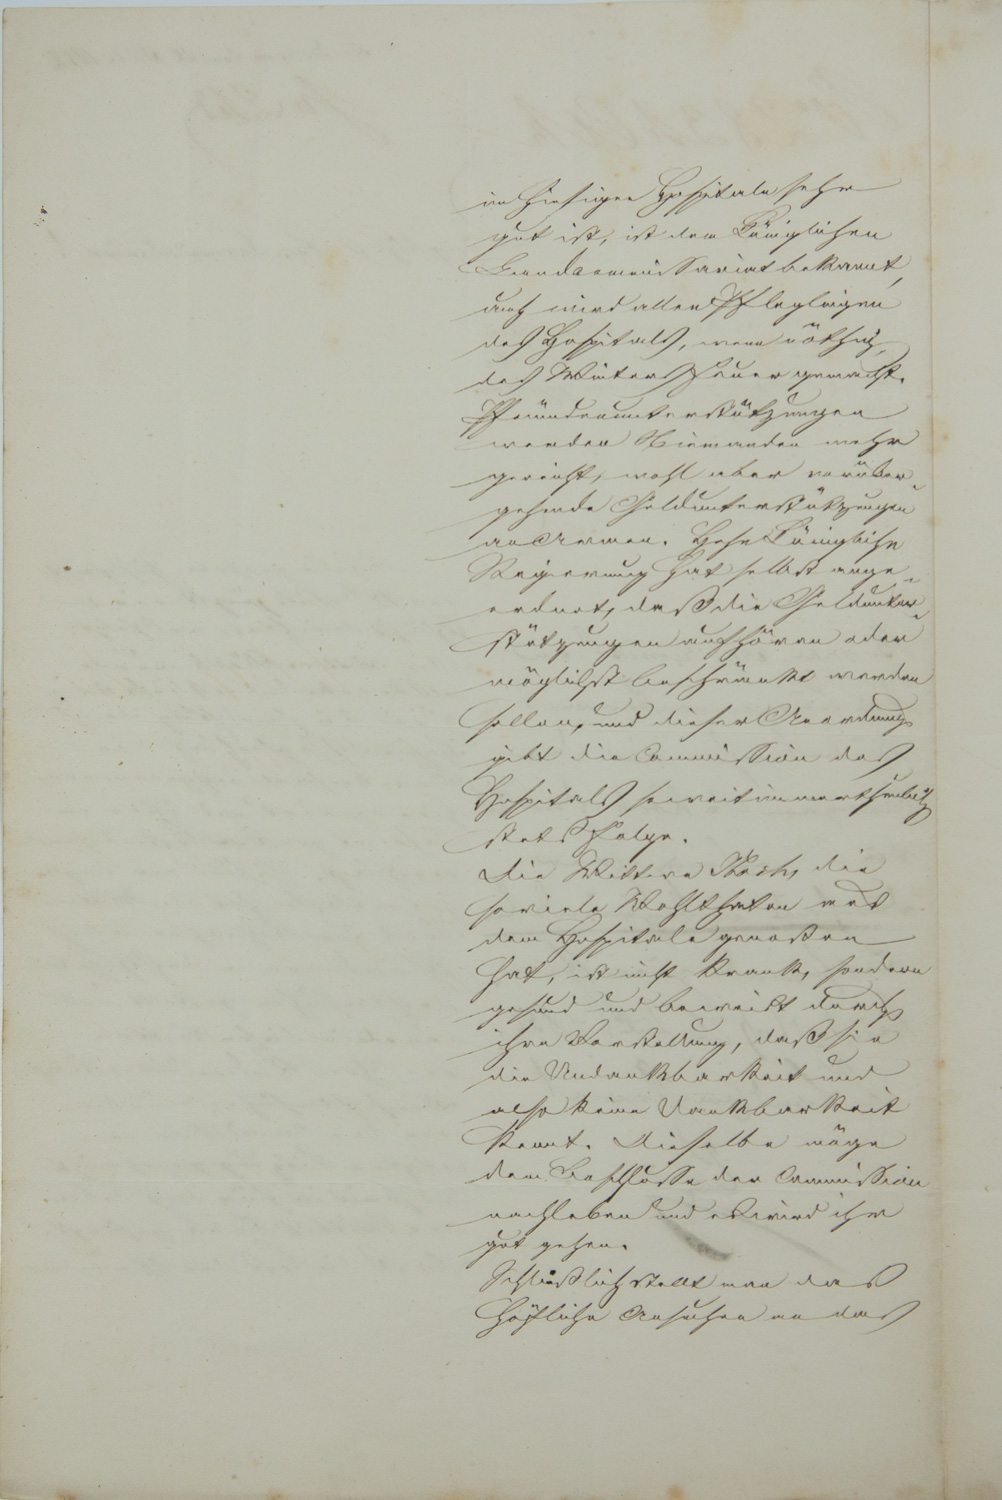 im hiesigen Hospitale sehr
gut ist, ist dem Königlichen
Landcommissariat bekannt,
auch wird allen Pfleglingen
des Hospitals, wenn nöthig,
des Winters Feuer gemacht.
Pfründeunterstützungen
werden Niemanden mehr
gereicht, wohl aber vorüber-
gehende Geldunterstützungen
an Armen. Hohe Königliche
Regierung hat selbst ange-
ordnet, daß die Geldunter-
stützungen aufhören oder
möglichst beschränkt werden
sollen, und dieser Anordnung
gibt die Commission des
Hospitals soweit immer thunlich
stets Folge.
Die Wittwe, die
soviele Wohlthaten aus
dem Hospitale genossen
hat, ist nicht krank, sondern
gesund und beweist durch
ihre Vorstellung, daß sie
die Undankbarkeit und
also keine Dankbarkeit
kennt. Dieselbe möge
dem Beschlusse der Commission
nachleben und es wird ihr
gut gehen.
Schließlich stellt man das
höfliche Ansuchen an das